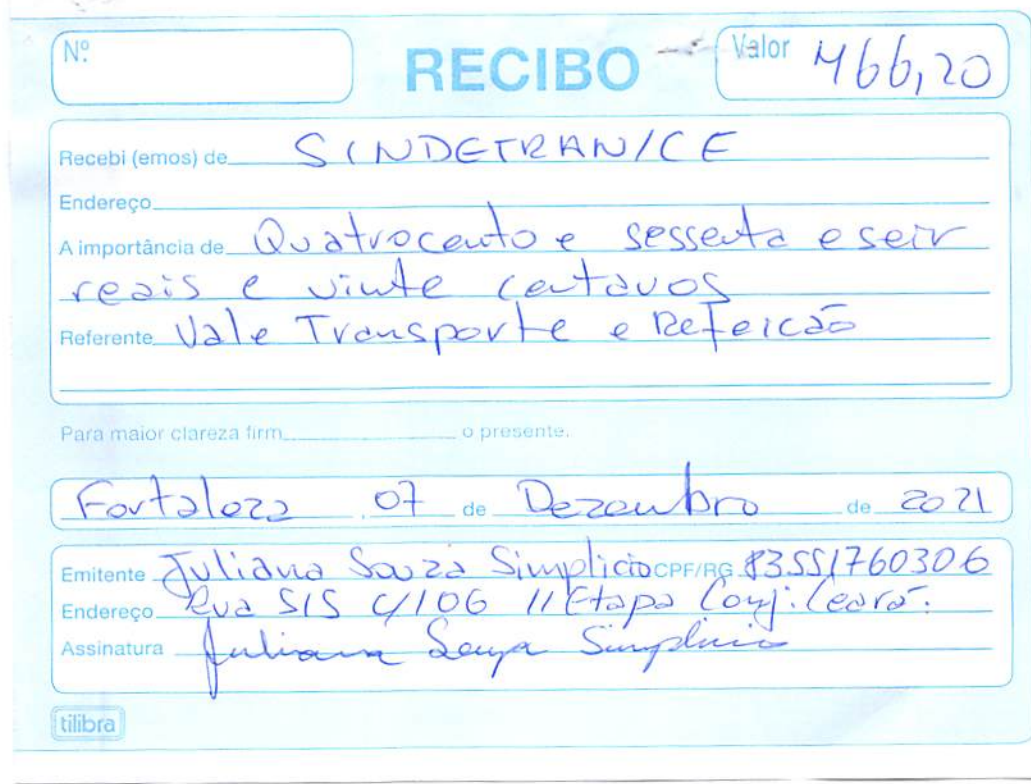 Nº
RECIBO
Valor 466,20
Recebi (emos) de SINDETRAN/CE
Endereço
A importância de Quatrocento e sessenta e seir
reais e vinte centavos
Referente Vale Transporte e Refeicão
Para maior clareza firm o presente.
Fortaleza, 07 de Dezembro de 2021
Emitente Juliana Souza Simplicio CPF/RG 83551760306
Endereço Rua 515 C/106 II Etapa Conj. Ceará.
Assinatura Juliana Souza Simplicio
tilibra